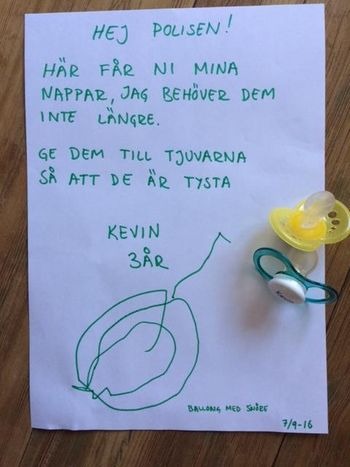 HEJ POLISEN!
HÄR FÅR NI MINA
NAPPAR, JAG BEHÖVER DEM
INTE LÄNGRE.
GE DEM TILL TJUVARNA
SÅ ATT DE ÄR TYSTA
KEVIN
3 ÅR
BALLONG MED SNÖRE
7/9-16